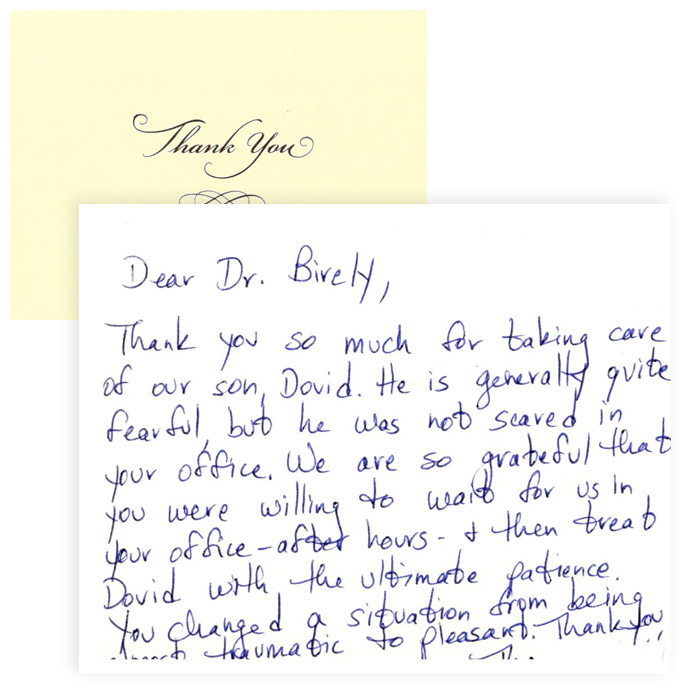 Thank You
Dear Dr. Birely,
Thank you so much for taking care
of our son, Dovid. He is generally quite
fearful, but he was not scared in
your office. We are so grateful that
you were willing to wait for us in
your office - after hours - & then treat
Dovid with the ultimate patience.
You changed a situation from being
traumatic to pleasant. Thank you,